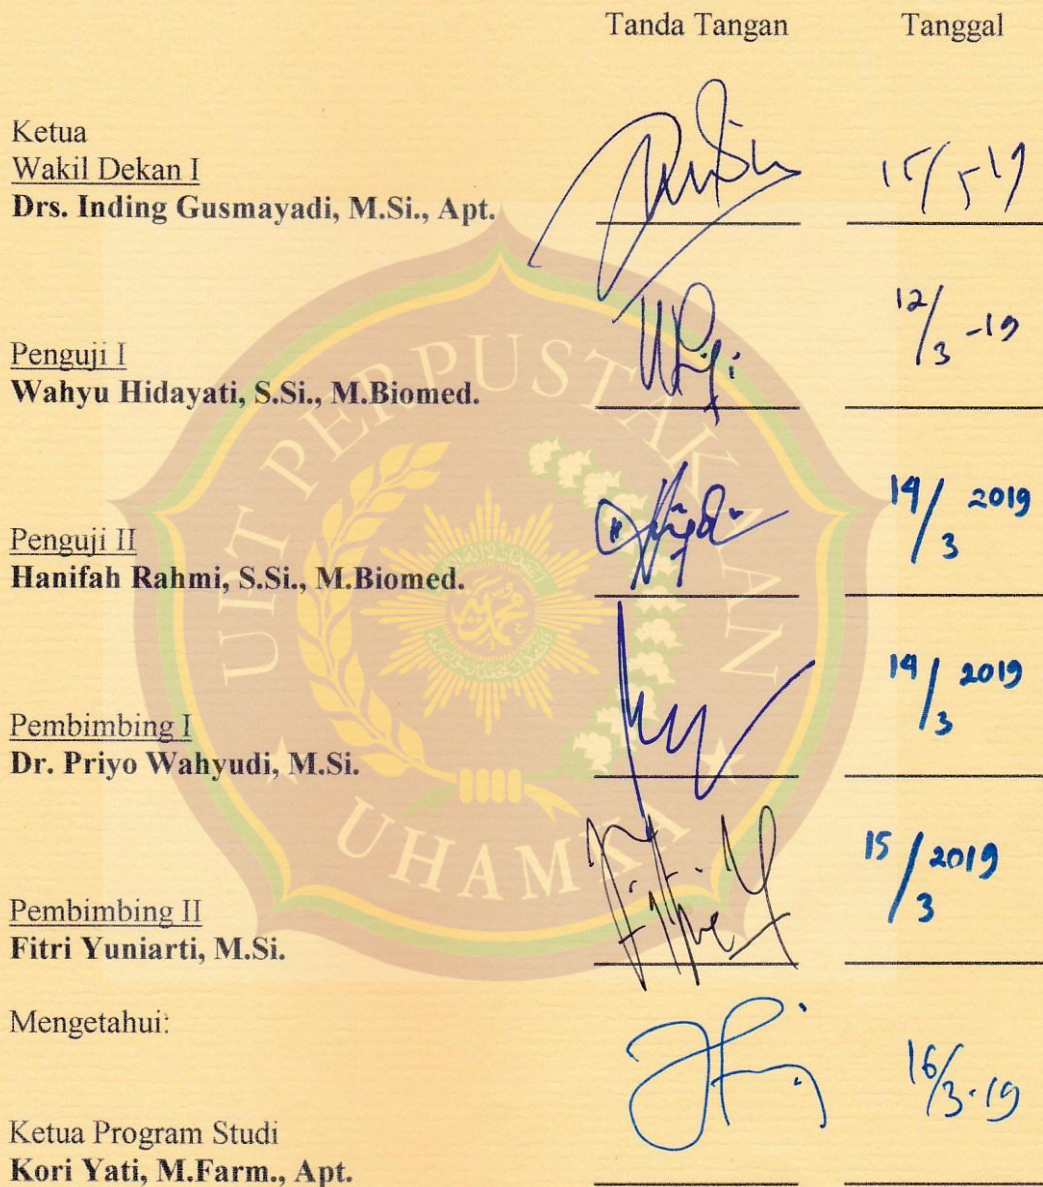 Tanda Tangan Tanggal
Ketua
Wakil Dekan I
Drs. Inding Gusmayadi, M.Si., Apt. 15/5 19
Penguji I
Wahyu Hidayati, S.Si., M.Biomed. 12/3 -19
Penguji II
Hanifah Rahmi, S.Si., M.Biomed. 14/3 2019
Pembimbing I
Dr. Priyo Wahyudi, M.Si. 14/3 2019
Pembimbing II
Fitri Yuniarti, M.Si. 15/3 2019
Mengetahui:
Ketua Program Studi
Kori Yati, M.Farm., Apt. 16/3-19
UPT PERPUSTAKAAN
UHAMKA